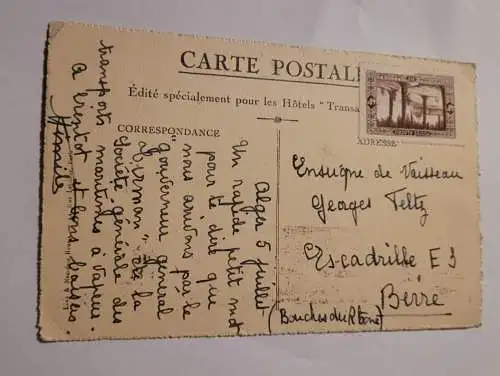 CARTE POSTALE
Édité spécialement pour les Hôtels "Transa
CORRESPONDANCE
ADRESSE
Alger 5 juillet
Un rapide petit mot
pour te dire que
nous arrivons par le
"Gouverneur général
de la
Société générale des
transports maritimes à vapeur.
A bientôt et bons baisers.
Enseigne de Vaisseau
Georges Feltz
Escadrille E3
Berre
(Bouches du Rhône)